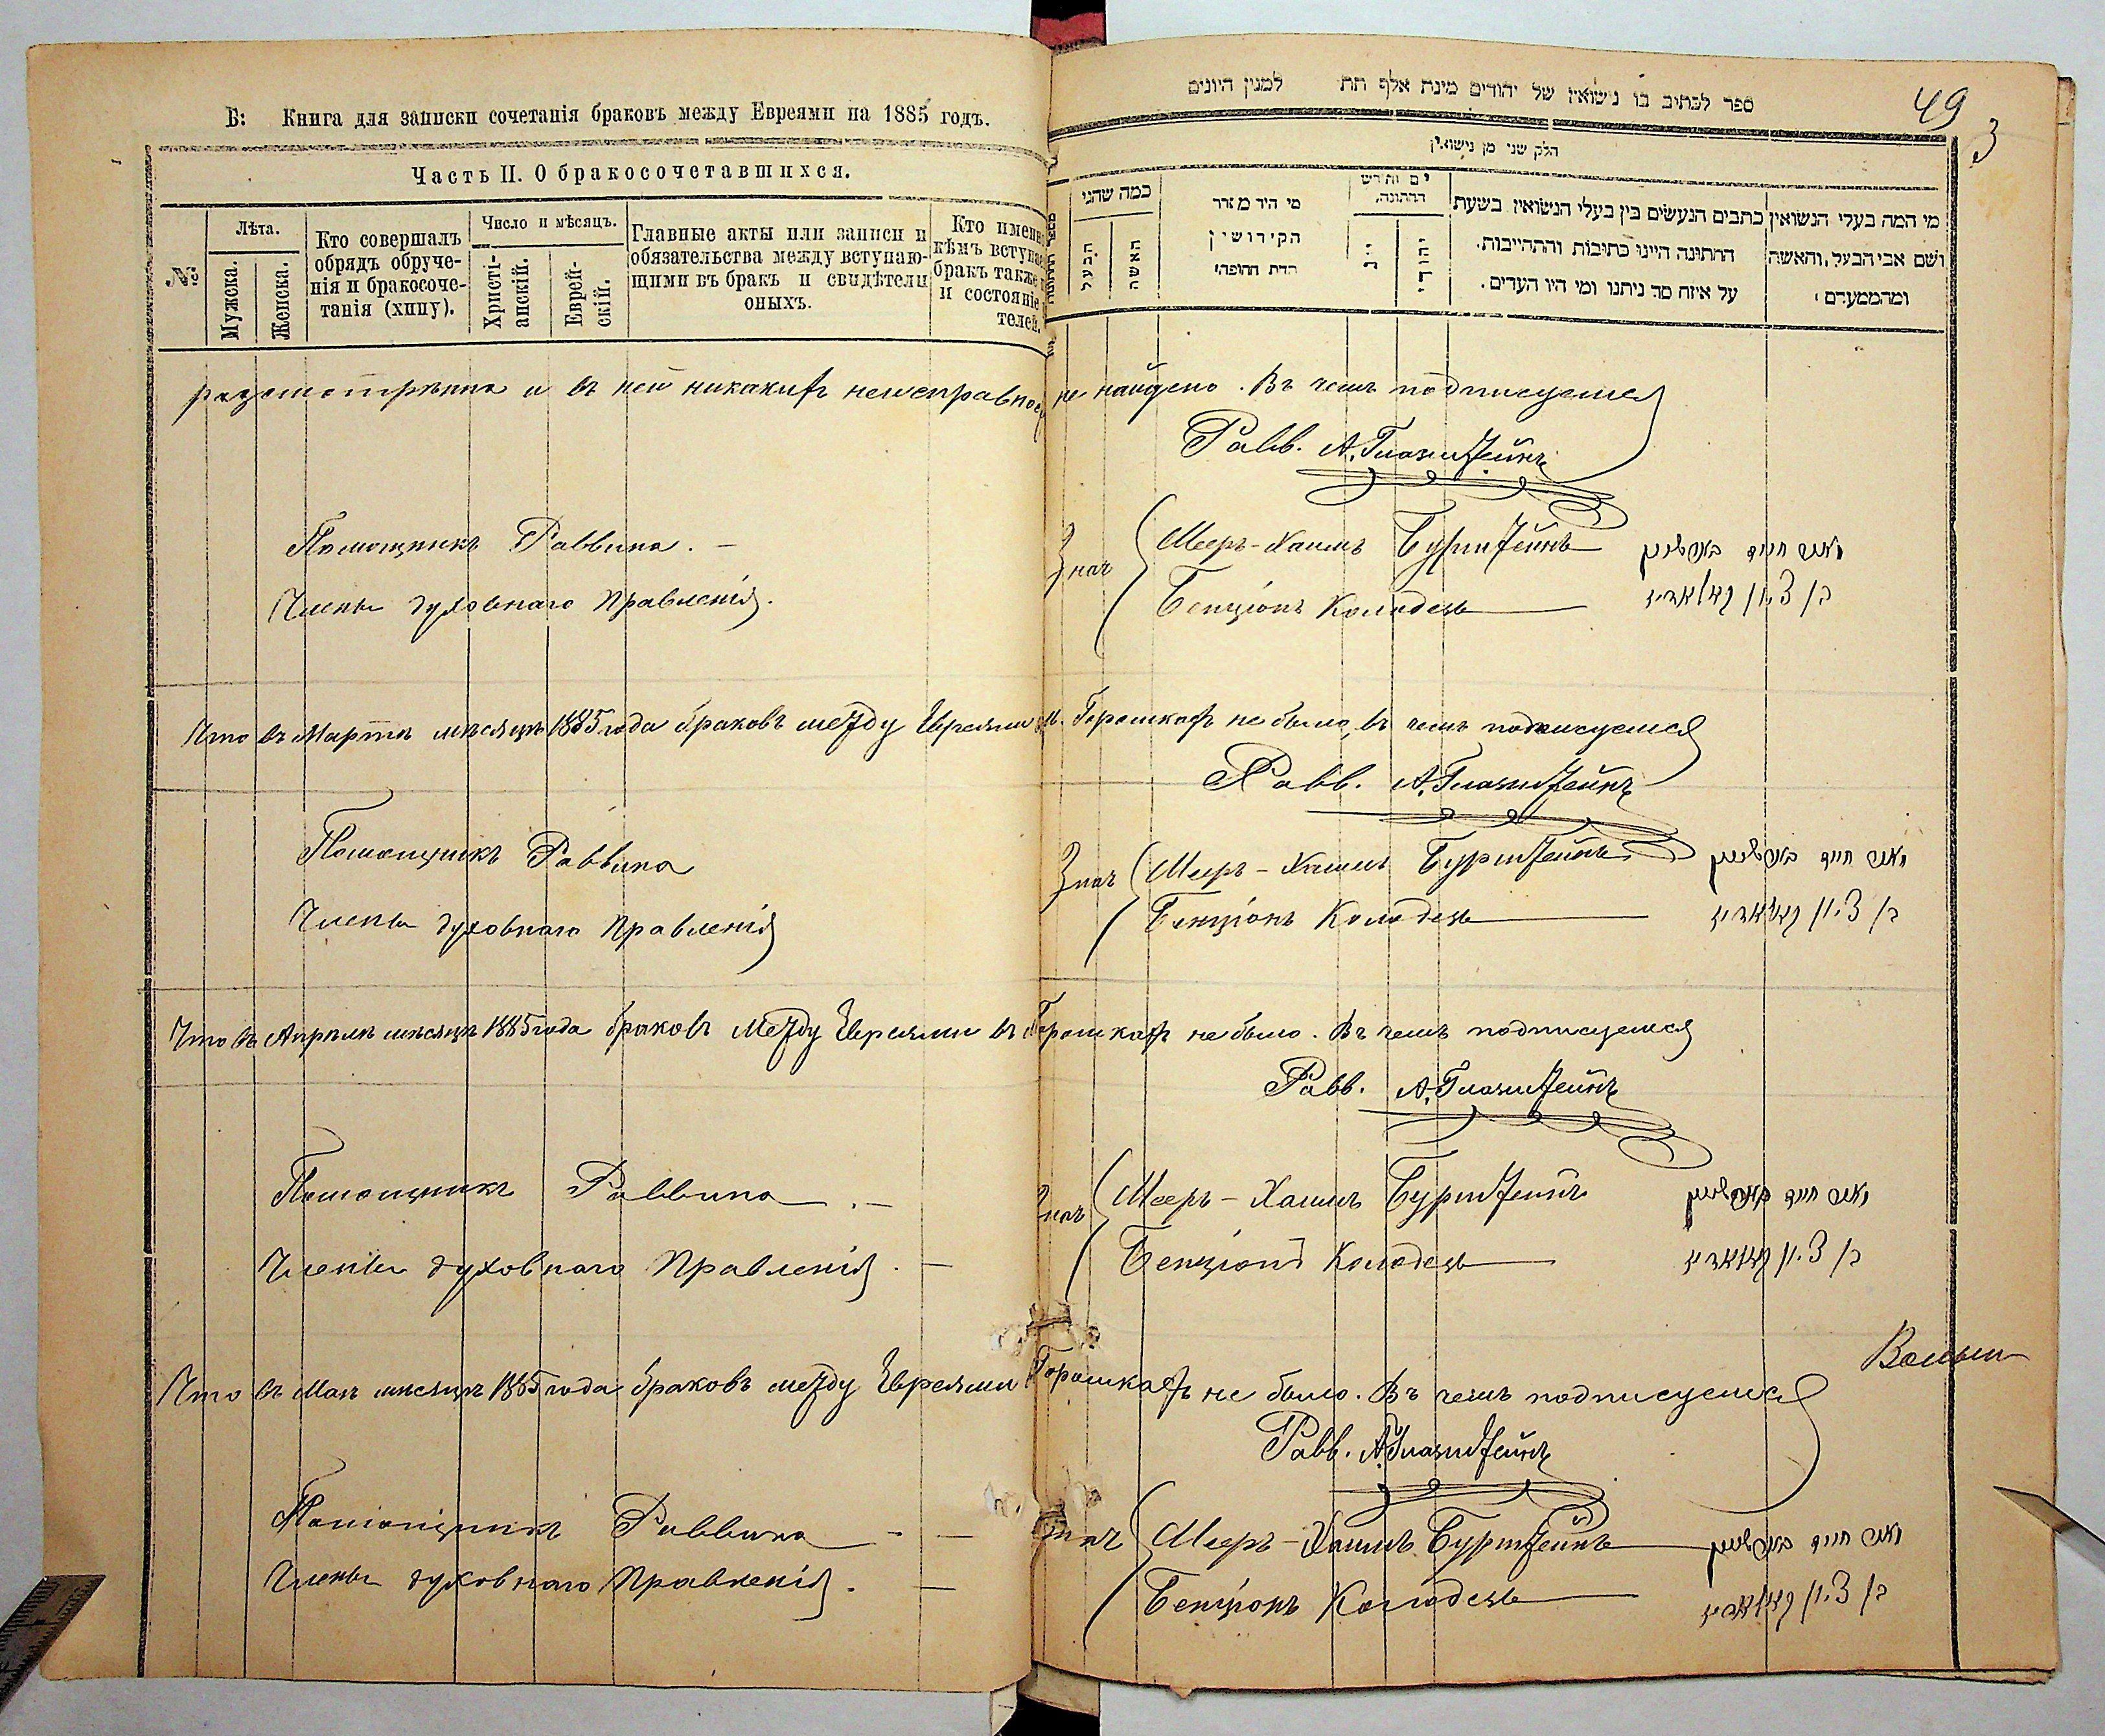 Б: Книга для записки сочетанія браковъ между Евреями на 1885 годъ.
Часть II. О бракосочетавшихся.
№
Лѣта.
Мужска.
Женска.
Кто совершалъ
обрядъ обруче-
нія и бракосоче-
танія (хипу).
Число и мѣсяцъ.
Христі-
анскій.
Еврей-
скій.
Главные акты или записи и
обязательства между вступаю-
щими въ бракъ и свидѣтели
оныхъ.
Кто именн
кѣмъ вступа
бракъ также
и состояніе
телей.
49
3
ספר לכתיב בו נישואין של יהודים מינת אלף תת למנין היונים
חלק שני מן נישואין
כמה שהני
הבעל
האשה
מי היה מסדר
הקידושין
הדת החופה
יום וחדש
החתונה.
יוני
יהודי
כתבים הנעשים בין בעלי הנשואין בשעת
החתונה היינו כתובות והתחייבות.
על איזה סך ניתנו ומי היו העדים.
מי המה בעלי הנשואין
ושם אבי הבעל, והאשה
ומהמעמדם
разсмотрѣна и въ ней никакихъ неисправнос не найдено. Въ чемъ подписуемся
Равв. А. Глазштейнъ
Помощникъ Раввина. — Знач Мееръ-Хаимъ Бурштейнъ מאיר חיים בורשטיין
Члены духовнаго Правленія. Бенціонъ Колодезь בן ציון קאלאדיז
Что въ Мартѣ мѣсяцѣ 1885 года браковъ между Евреями м. Горошкахъ не было, въ чемъ подписуемся
Равв. А. Глазштейнъ
Помощникъ Раввина Знач Мееръ-Хаимъ Бурштейнъ מאיר חיים בורשטיין
Члены духовнаго Правленія Бенціонъ Колодезь בן ציון קאלאדיז
Что въ Апрѣлѣ мѣсяцѣ 1885 года браковъ между Евреями въ Горошкахъ не было. Въ чемъ подписуемся
Равв. А. Глазштейнъ
Помощникъ Раввина. — Знач Мееръ-Хаимъ Бурштейнъ מאיר חיים בורשטיין
Члены духовнаго Правленія. — Бенціонъ Колодезь בן ציון קאלאדיז
Что въ Маѣ мѣсяцѣ 1885 года браковъ между Евреями Горошкахъ не было. Въ чемъ подписуемся
Равв. А. Глазштейнъ
Помощникъ Раввина — — Знач Мееръ-Хаимъ Бурштейнъ מאיר חיים בורשטיין
Члены духовнаго Правленія. — Бенціонъ Колодезь בן ציון קאלאדיז